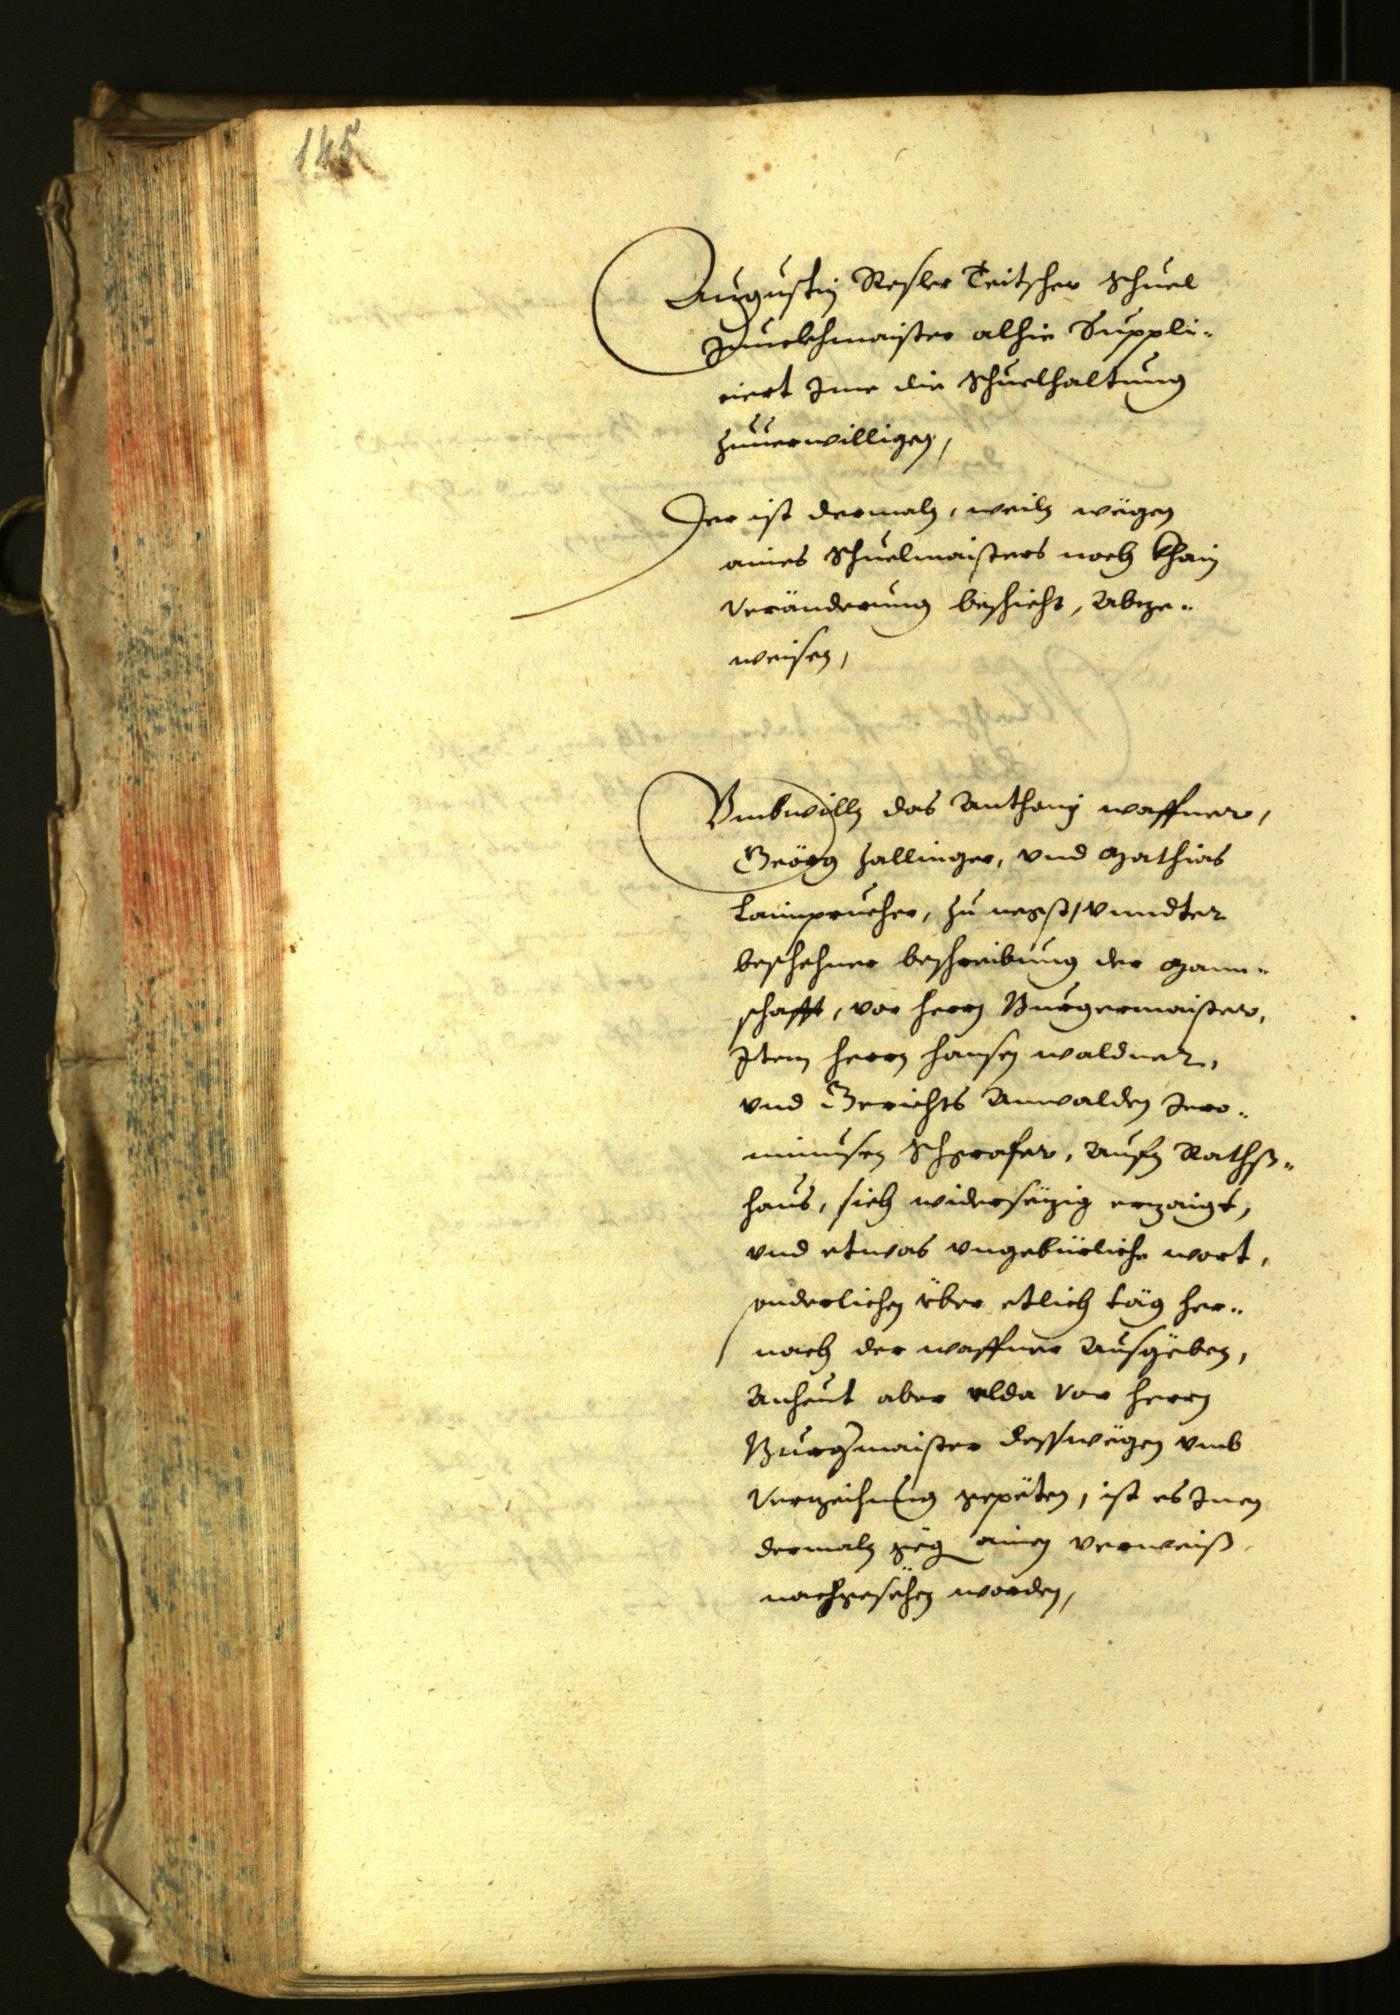 145
Augustin Resler Teitscher Schuel
maister alhie Suppli-
ciert Ime die Schuelhaltung
zuuerwilligen,
Der ist dermaln, weiln wegen
aines Schuelmaisters noch khain
Veränderung beschicht, Abge-
weisen,
Vmbwilln das Anthonj waffner,
Geörg Hallinger, vnd Mathias
Lainprucher, zu negst, vnndter
beschehner beschreibung der Mann-
schafft, vor herrn Burgermaister,
Item herrn Hansen waldner,
vnd Gerichts Anwalden Jero-
nimusen Schgrafer, Aufm Rathß-
haus, sich widersezig erzaigt,
vnd etwas vngebürliche wort,
sonderlichen über etlich täg her-
nach der waffner Ausgeben,
Anheut aber alda vor herrn
Burgmaister desswegen vmb
Verzeihung gepeten, ist es Inen
dermaln geg ainen verweiß
nachgesehen worden,